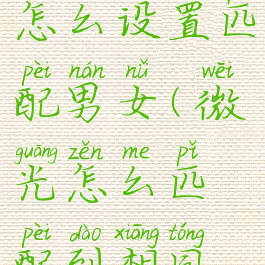 怎么设置匹
pèi nán nǚ wēi
配男女(微
guāng zěn me pǐ
光怎么匹
pèi dào xiāng tóng
配到相同